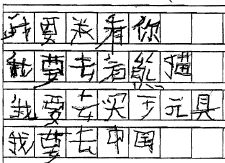 我要去看你
我要去看熊猫
我要去买玩具
我要去中国